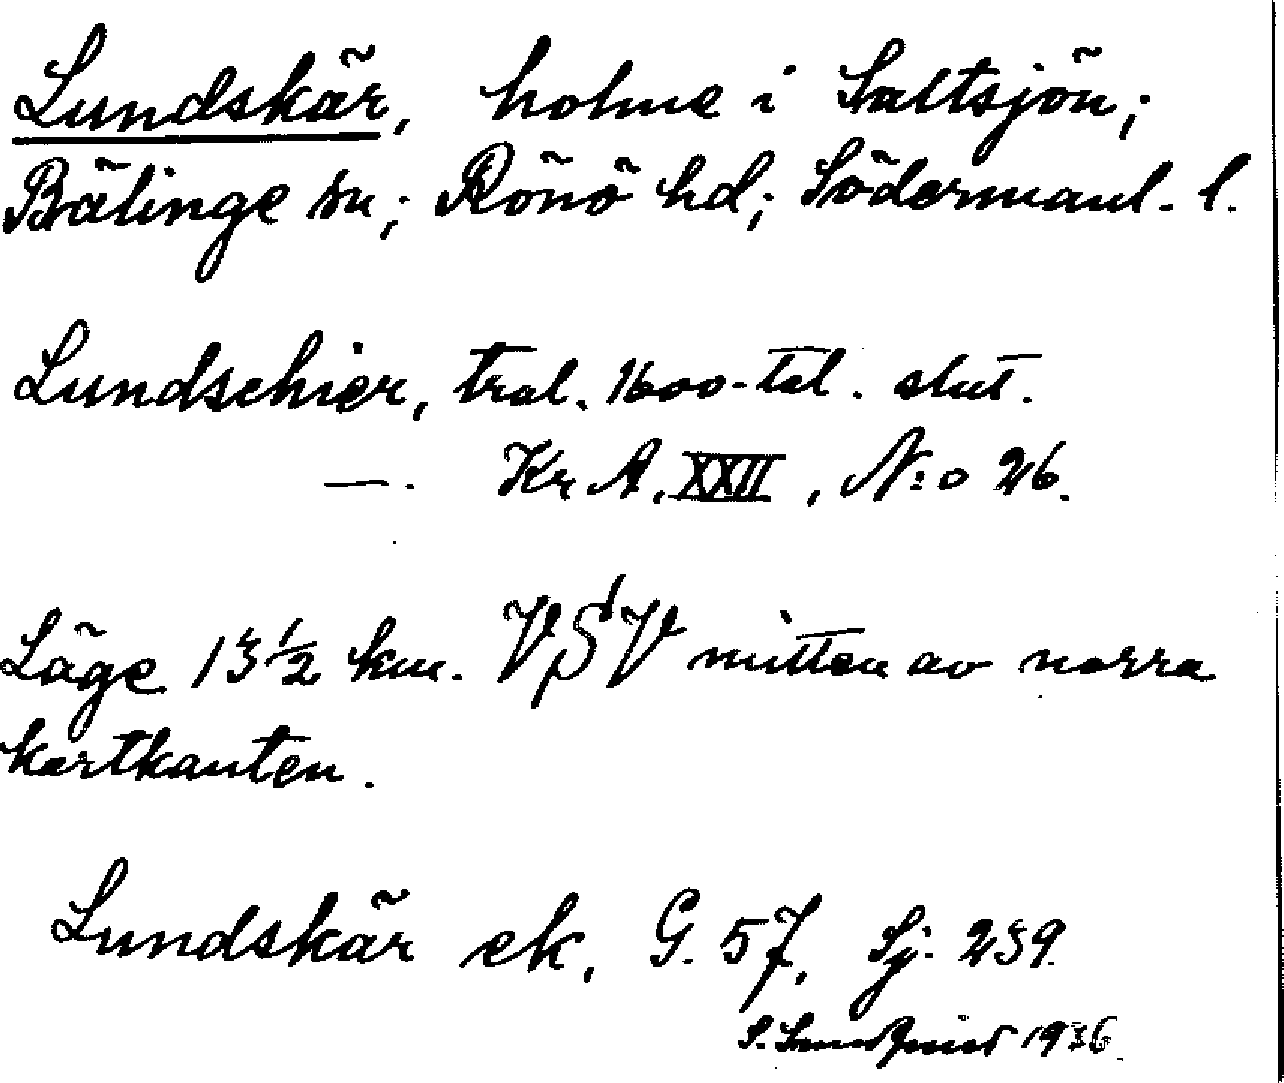 Lundskär, holme i Saltsjön;
Bälinge sn; Rönö hd; Södermanl. l.
Lundschier, tral. 1600-tal. slut.
—. Kr A. XXII, N:o 26.
Läge 13 1/2 km. VSV mitten av norra
kartkanten.
Lundskär ek. G. 57, Sj. 239.
S. 1936